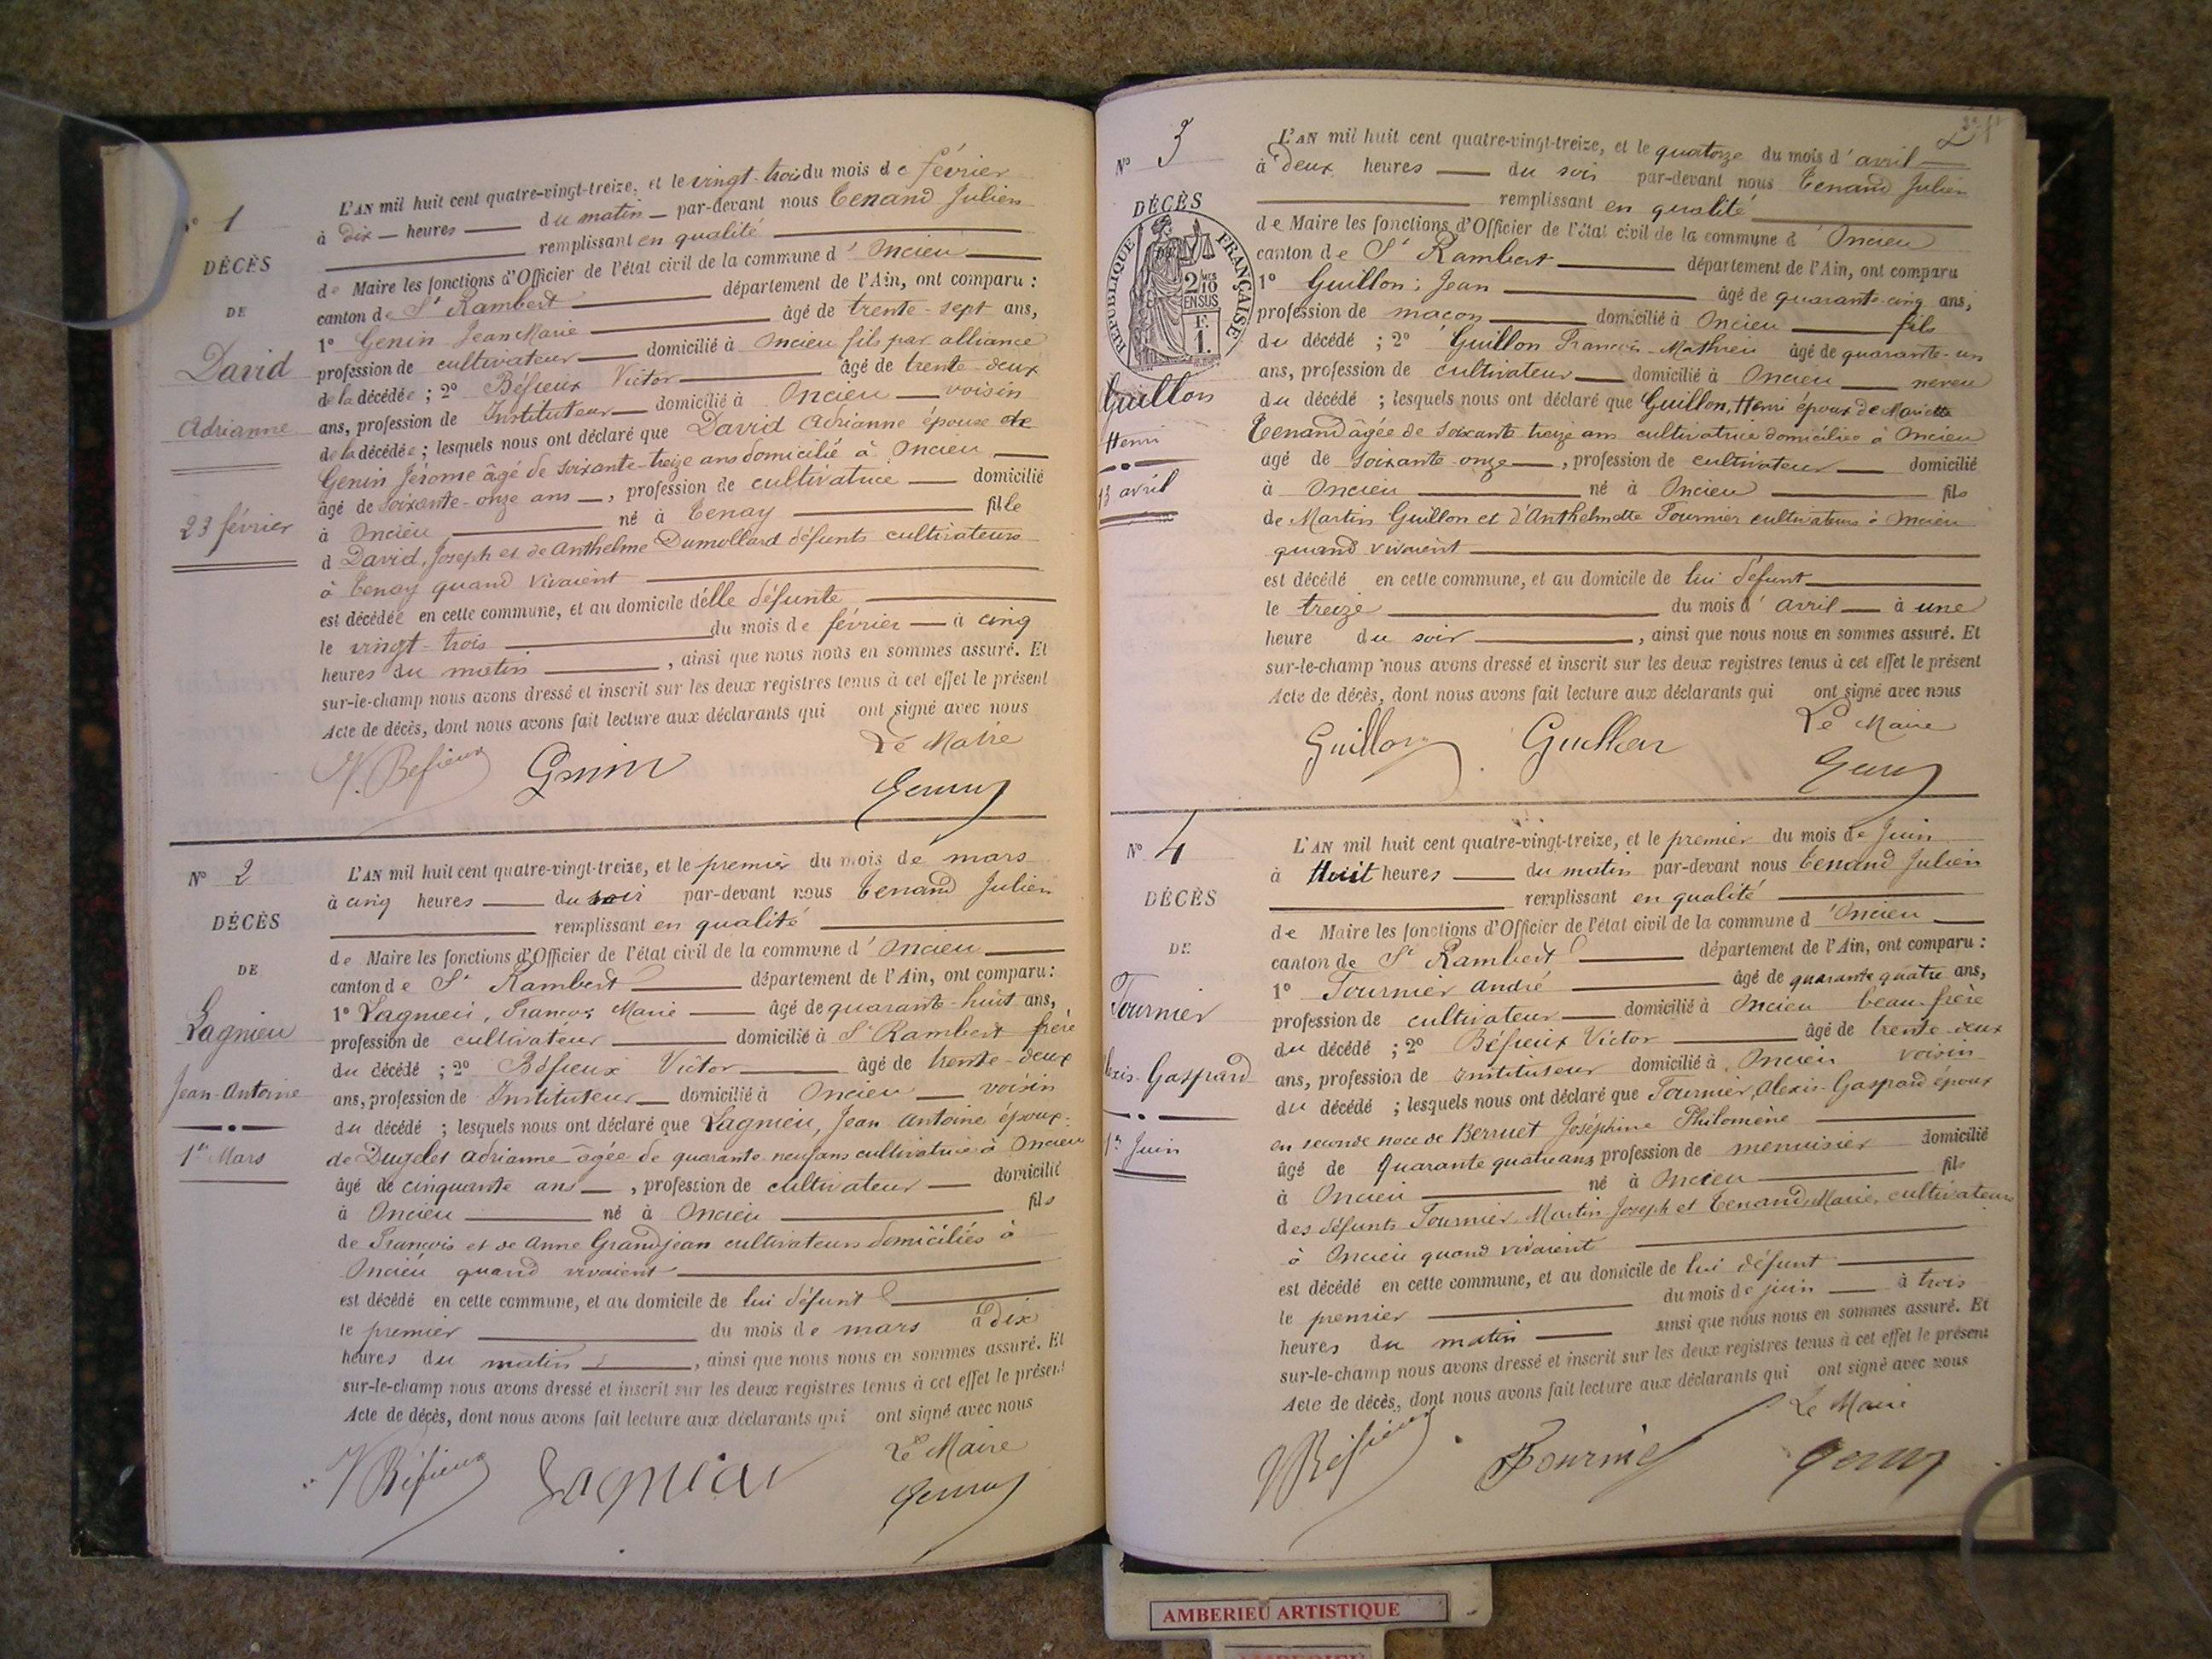 N° 1
DÉCÈS
DE
David
Adrianne
23 février
L'AN mil huit cent quatre-vingt-treize, et le vingt-trois du mois de février
à dix heures du matin par-devant nous Tenand Julien
remplissant en qualité
de Maire les fonctions d'Officier de l'état civil de la commune d'Oncieu
canton de St Rambert département de l'Ain, ont comparu :
1° Genin Jean Marie âgé de trente-sept ans,
profession de cultivateur domicilié à Oncieu fils par alliance
de la décédée ; 2° Béfieux Victor âgé de trente-deux
ans, profession de Instituteur domicilié à Oncieu voisin
de la décédée ; lesquels nous ont déclaré que David Adrianne épouse de
Genin Jérome âgé de soixante-treize ans domicilié à Oncieu
âgé de soixante-onze ans, profession de cultivatrice domicilié
à Oncieu né à Tenay fille
d David, Joseph et de Anthelme Dumollard défunts cultivateurs
à Tenay quand vivaient
est décédée en cette commune, et au domicile d'elle défunte
le vingt-trois du mois de février à cinq
heures du matin, ainsi que nous nous en sommes assuré. Et
sur-le-champ nous avons dressé et inscrit sur les deux registres tenus à cet effet le présent
Acte de décès, dont nous avons fait lecture aux déclarants qui ont signé avec nous
Le Maire
V. Béfieux Genin
N° 2
DÉCÈS
DE
Lagnieu
Jean-Antoine
1er Mars
L'AN mil huit cent quatre-vingt-treize, et le premier du mois de mars
à cinq heures du soir par-devant nous Tenand Julien
remplissant en qualité
de Maire les fonctions d'Officier de l'état civil de la commune d'Oncieu
canton de St Rambert département de l'Ain, ont comparu :
1° Lagnieu, François Marie âgé de quarante-huit ans,
profession de cultivateur domicilié à St Rambert frère
du décédé ; 2° Béfieux Victor âgé de trente-deux
ans, profession de Instituteur domicilié à Oncieu voisin
du décédé ; lesquels nous ont déclaré que Lagnieu, Jean Antoine époux
de Adrianne âgée de quarante neuf ans cultivatrice à Oncieu
âgé de cinquante ans, profession de cultivateur domicilié
à Oncieu né à Oncieu fils
de François et de Anne Grandjean cultivateurs domiciliés à
Oncieu quand vivaient
est décédé en cette commune, et au domicile de lui défunt
le premier du mois de mars à dix
heures du matin, ainsi que nous nous en sommes assuré. Et
sur-le-champ nous avons dressé et inscrit sur les deux registres tenus à cet effet le présent
Acte de décès, dont nous avons fait lecture aux déclarants qui ont signé avec nous
Le Maire
V Béfieux Lagnieu
N° 3
DÉCÈS
RÉPUBLIQUE FRANÇAISE
2/10
EN SUS
F.
1.
Guillon
Henri
13 avril
L'AN mil huit cent quatre-vingt-treize, et le quatorze du mois d'avril
à deux heures du soir par-devant nous Tenand Julien
remplissant en qualité
de Maire les fonctions d'Officier de l'état civil de la commune d'Oncieu
canton de St Rambert département de l'Ain, ont comparu
1° Guillon, Jean âgé de quarante-cinq ans,
profession de maçon domicilié à Oncieu fils
du décédé ; 2° Guillon François-Mathieu âgé de quarante-un
ans, profession de cultivateur domicilié à Oncieu neveu
du décédé ; lesquels nous ont déclaré que Guillon, Henri époux de Mariette
Tenand âgée de soixante treize ans cultivatrice domiciliée à Oncieu
âgé de soixante-onze, profession de cultivateur domicilié
à Oncieu né à Oncieu fils
de Martin Guillon et d'Anthelmette Tournier cultivateurs à Oncieu
quand vivaient
est décédé en cette commune, et au domicile de lui défunt
le treize du mois d'avril à une
heure du soir, ainsi que nous nous en sommes assuré. Et
sur-le-champ nous avons dressé et inscrit sur les deux registres tenus à cet effet le présent
Acte de décès, dont nous avons fait lecture aux déclarants qui ont signé avec nous
Le Maire
Guillon Guillon
N° 4
DÉCÈS
DE
Tournier
Alexis-Gaspard
1er Juin
L'AN mil huit cent quatre-vingt-treize, et le premier du mois de Juin
à Huit heures du matin par-devant nous Tenand Julien
remplissant en qualité
de Maire les fonctions d'Officier de l'état civil de la commune d'Oncieu
canton de St Rambert département de l'Ain, ont comparu :
1° Tournier André âgé de quarante quatre ans,
profession de cultivateur domicilié à Oncieu beau-frère
du décédé ; 2° Béfieux Victor âgé de trente-deux
ans, profession de Instituteur domicilié à Oncieu voisin
du décédé ; lesquels nous ont déclaré que Tournier, Alexis-Gaspard époux
en seconde noce de Berruet Joséphine Philomène
âgé de Quarante quatre ans profession de menuisier domicilié
à Oncieu né à Oncieu fils
des défunts Tournier, Martin Joseph et Tenand, Marie, cultivateurs
à Oncieu quand vivaient
est décédé en cette commune, et au domicile de lui défunt
le premier du mois de juin à trois
heures du matin ainsi que nous nous en sommes assuré. Et
sur-le-champ nous avons dressé et inscrit sur les deux registres tenus à cet effet le présent
Acte de décès, dont nous avons fait lecture aux déclarants qui ont signé avec nous
Le Maire
V Béfieux Tournier
AMBERIEU ARTISTIQUE
AMBERIEU